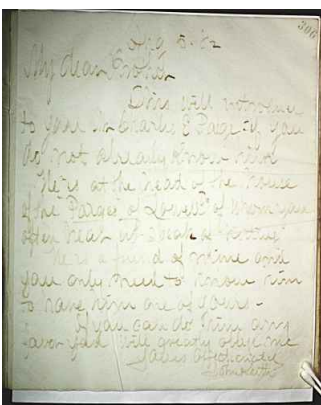 306
Aug 5. 82
My dear
This will introduce
to you Mr Charles E Paige if you
do not already know him
He is at the head of the house
of the "Paiges of Lowell" of whom you
often hear us speak
He is a friend of mine and
you only need to know him
to have him one of yours -
If you can do him any
favor you will greatly oblige me
Yours affectionately